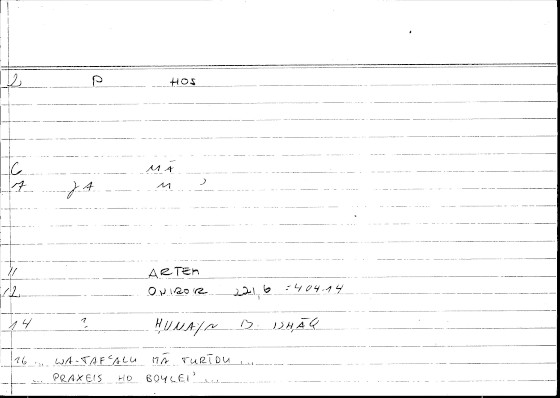 2 P HOS
6 MĀ
7 JA M ʾ
11 ARTEM
12 ONIROR 221,6 = 404.14
14 ? ḤUNAYN B. ISḤĀQ
16 ... WA-TAFʿALU MĀ TURĪDU ...
... PRAXEIS HO BOYLEI' ...